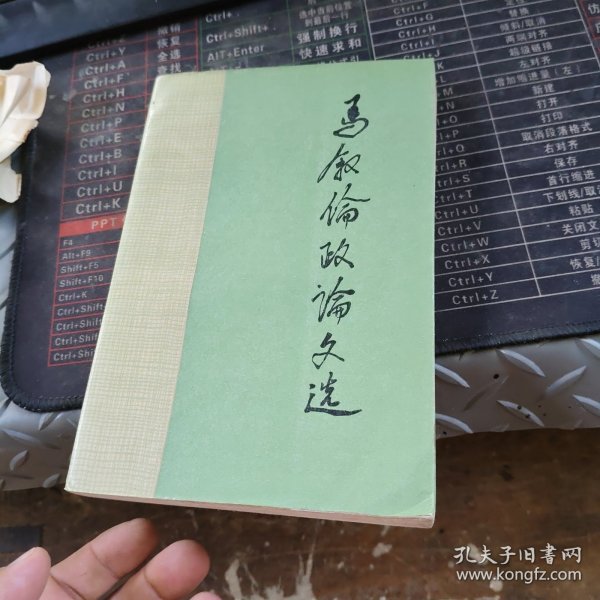 馬叙倫政論文选
撤销
Ctrl+Y 恢复
Ctrl+A 全选
Ctrl+F 查找
Ctrl+H
Ctrl+N
Ctrl+P
Ctrl+E
Ctrl+B
Ctrl+I
Ctrl+U
Ctrl+K
PPT
F4
Alt+F9
Shift+F5
Shift+F10
Ctrl+K
Ctrl+Shif
Ctrl+Shift
Ctrl+Shift
Ctrl+Shift
Ctrl+
Ctrl+Shift+
Alt+Enter
到最后一行
强制换行
快速求和
Ctrl+F
Ctrl+G 替换
Ctrl+H 倾斜/取消
Ctrl+I 两端对齐
Ctrl+J 超级链接
Ctrl+K 左对齐
Ctrl+L 增加缩进量(左)
Ctrl+M 新建
Ctrl+N 打开
Ctrl+O 打印
Ctrl+P 取消段落格式
Ctrl+Q 右对齐
Ctrl+R 保存
Ctrl+S 首行缩进
Ctrl+T 下划线/取消
Ctrl+U 粘贴
Ctrl+V 关闭文
Ctrl+W 剪切
Ctrl+X 恢复/
Ctrl+Y 撤
Ctrl+Z
孔夫子旧书网
www.kongfz.com